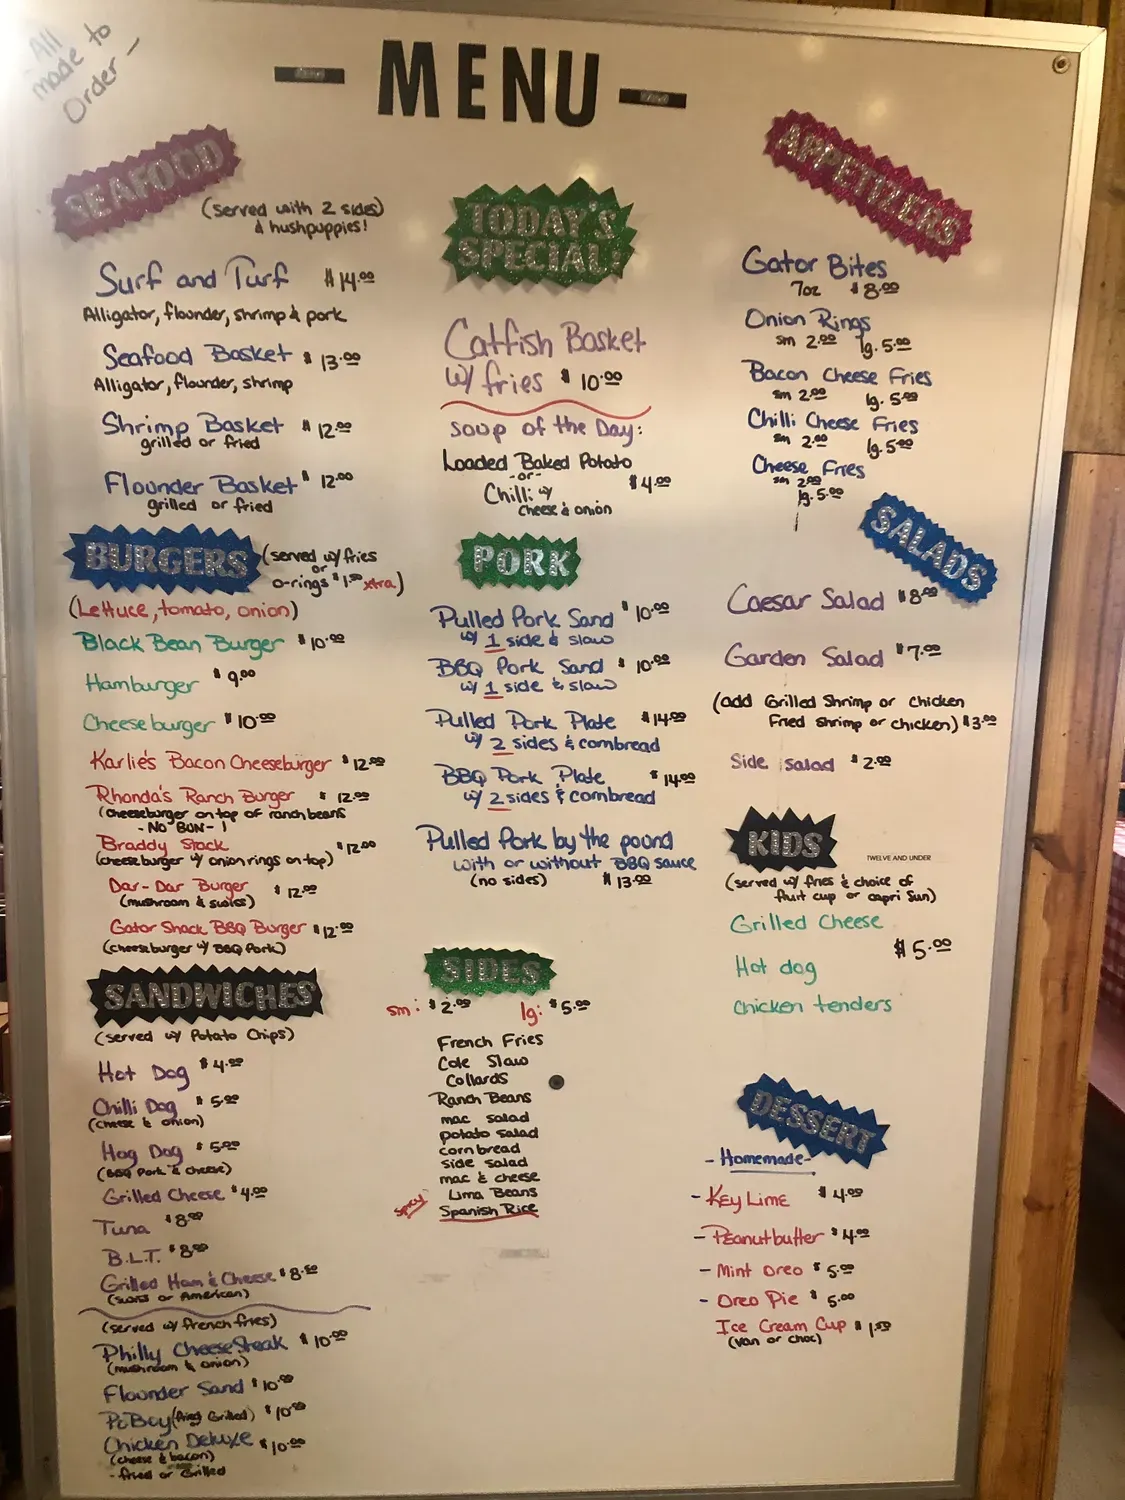 All
made to
Order-
- MENU -
SEAFOOD
(served with 2 sides)
& hushpuppies!
Surf and Turf $14.00
Alligator, flounder, shrimp & pork
Seafood Basket $13.00
Alligator, flounder, shrimp
Shrimp Basket $12.00
grilled or fried
Flounder Basket $12.00
grilled or fried
BURGERS
(served w/ fries
or
o-rings $1.50 xtra)
(Lettuce, tomato, onion)
Black Bean Burger $10.00
Hamburger $9.00
Cheeseburger $10.00
Karlie's Bacon Cheeseburger $12.00
Rhonda's Ranch Burger $12.00
(cheeseburger on top of ranch beans
- NO BUN - )
Braddy Stack $12.00
(cheeseburger w/ onion rings on top)
Dar-Dar Burger $12.00
(mushroom & swiss)
Gator Shack BBQ Burger $12.00
(cheeseburger w/ BBQ Pork)
SANDWICHES
(served w/ Potato Chips)
Hot Dog $4.00
Chilli Dog $5.00
(cheese & onion)
Hog Dog $5.00
(BBQ Pork & Cheese)
Grilled Cheese $4.00
Tuna $8.00
B.L.T. $8.00
Grilled Ham & Cheese $8.50
(swiss or American)
(served w/ french fries)
Philly CheeseSteak $10.00
(mushroom & onion)
Flounder Sand $10.00
PoBoy (fried Grilled) $10.00
Chicken Deluxe $10.00
(cheese & bacon)
- fried or Grilled
TODAY'S
SPECIAL!
Catfish Basket
w/ fries $10.00
Soup of the Day:
Loaded Baked Potato
-or- $4.00
Chilli w/
cheese & onion
PORK
Pulled Pork Sand $10.00
w/ 1 side & slaw
BBQ Pork Sand $10.00
w/ 1 side & slaw
Pulled Pork Plate $14.00
w/ 2 sides & cornbread
BBQ Pork Plate $14.00
w/ 2 sides & cornbread
Pulled Pork by the pound
with or without BBQ sauce
(no sides) $13.00
SIDES
sm: $2.00 lg: $5.00
French Fries
Cole Slaw
Collards
Ranch Beans
mac salad
potato salad
cornbread
side salad
mac & cheese
Lima Beans
spicy Spanish Rice
APPETIZERS
Gator Bites
7oz $8.00
Onion Rings
sm 2.00 lg. 5.00
Bacon Cheese Fries
sm 2.00 lg. 5.00
Chilli Cheese Fries
sm 2.00 lg. 5.00
Cheese Fries
sm 2.00
lg. 5.00
SALADS
Caesar Salad $8.00
Garden Salad $7.00
(add Grilled Shrimp or chicken
Fried shrimp or chicken) $3.00
Side salad $2.00
KIDS
TWELVE AND UNDER
(served w/ fries & choice of
fruit cup or capri sun)
Grilled Cheese
$5.00
Hot dog
chicken tenders
DESSERT
- Homemade -
- Key Lime $4.00
- Peanutbutter $4.00
- Mint Oreo $5.00
- Oreo Pie $5.00
Ice Cream Cup $1.50
(van or choc)